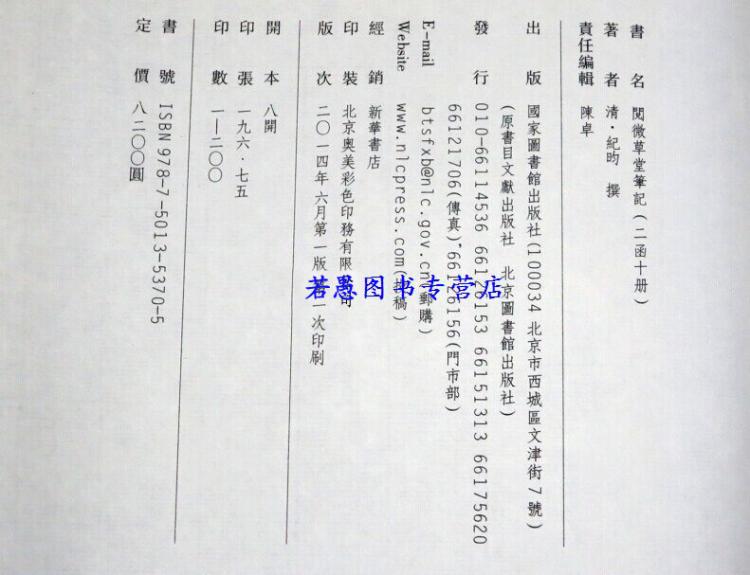 書名 閱微草堂筆記(二函十册)
著者 清·紀昀 撰
責任編輯 陳卓
出版 國家圖書館出版社(100034 北京市西城區文津街7號)
(原書目文獻出版社 北京圖書館出版社)
發行 010-66114536 66126153 66151313 66175620
66121706(傳真)·66126156(門市部)
E-mail btsfxb@nlc.gov.cn(郵購)
Website www.nlcpress.com(投稿)
經銷 新華書店
印裝 北京奧美彩色印務有限公司
版次 二〇一四年六月第一版 第一次印刷
開本 八開
印張 一九六·七五
印數 一—二〇〇
書號 ISBN 978-7-5013-5370-5
定價 八二〇〇圓
若愚图书专营店